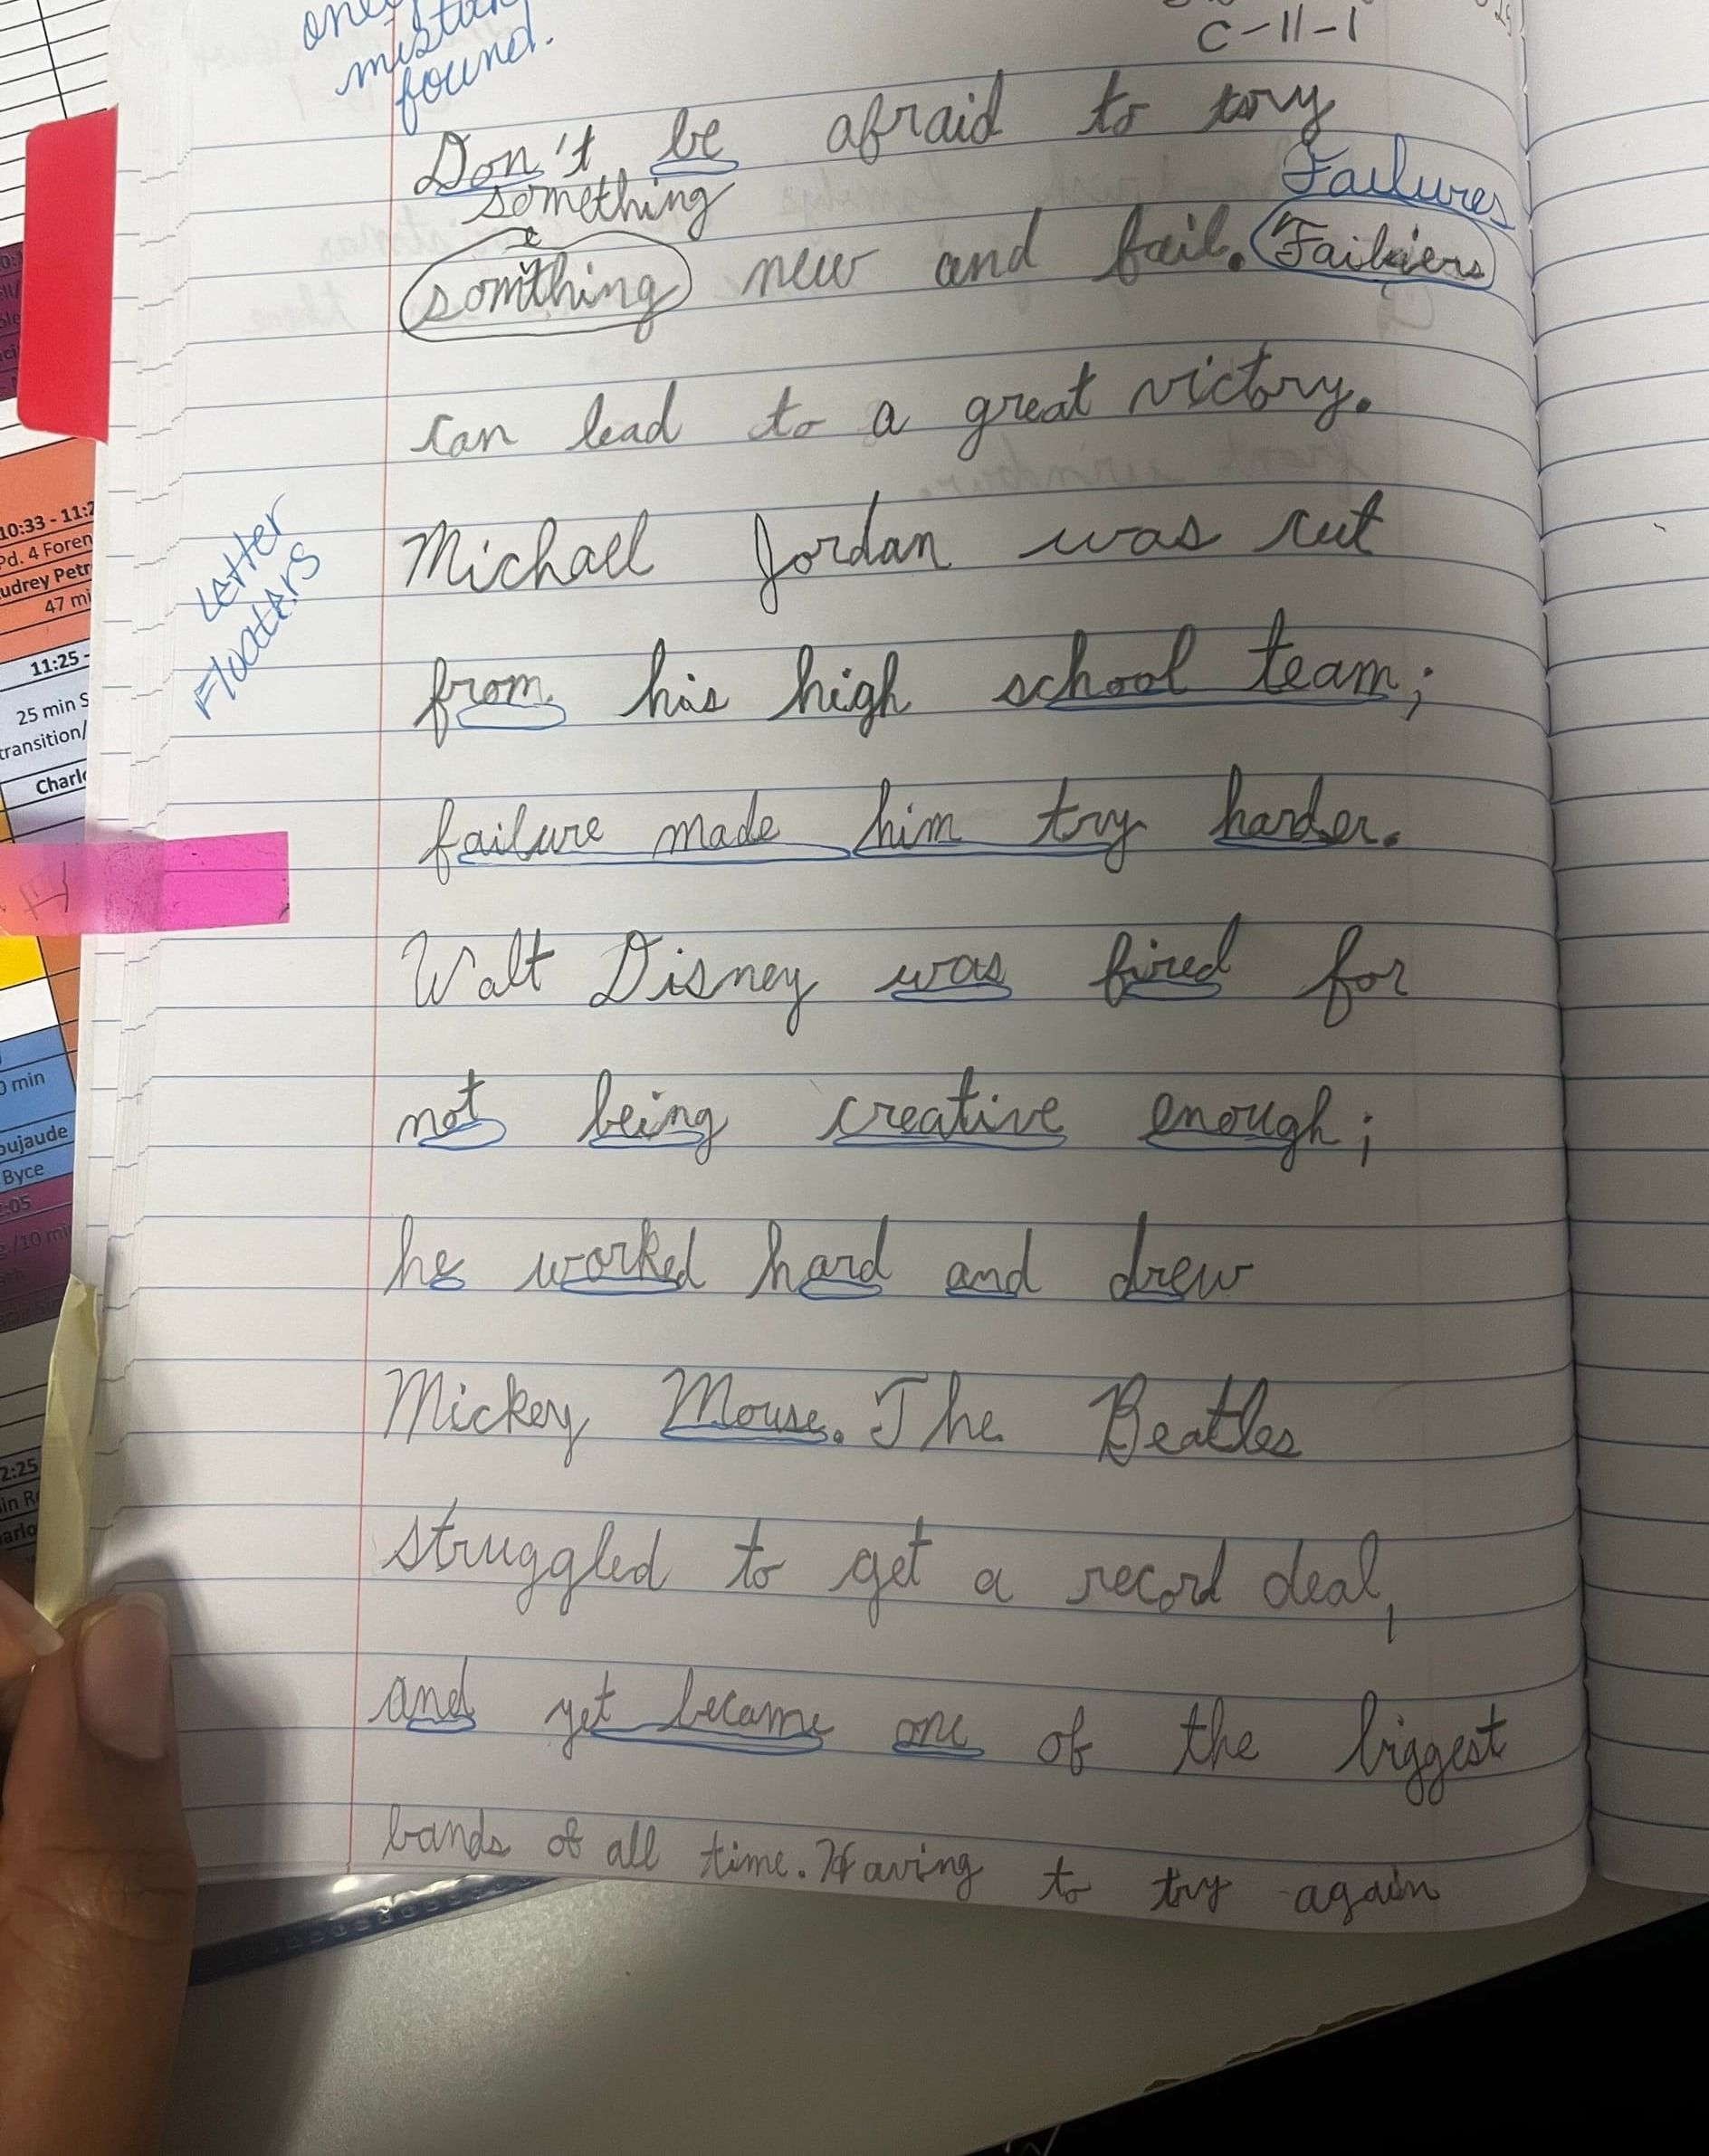 mistak
found.
C-11-1
Don't be afraid to try
something
Failures
somthing new and fail. Failiers
can lead to a great victory.
Michael Jordan was cut
Letter
Floaters
from his high school team;
failure made him try harder.
Walt Disney was fired for
not being creative enough;
he worked hard and drew
Mickey Mouse. The Beatles
struggled to get a record deal,
and yet became one of the biggest
bands of all time. Having to try again
10:33 - 11:2
Pd. 4 Foren
udrey Petr
47 mi
11:25 -
25 min S
transition/
Charl
0 min
oujaude
Byce
:05
g/10 mi
2:25
in R
arlo